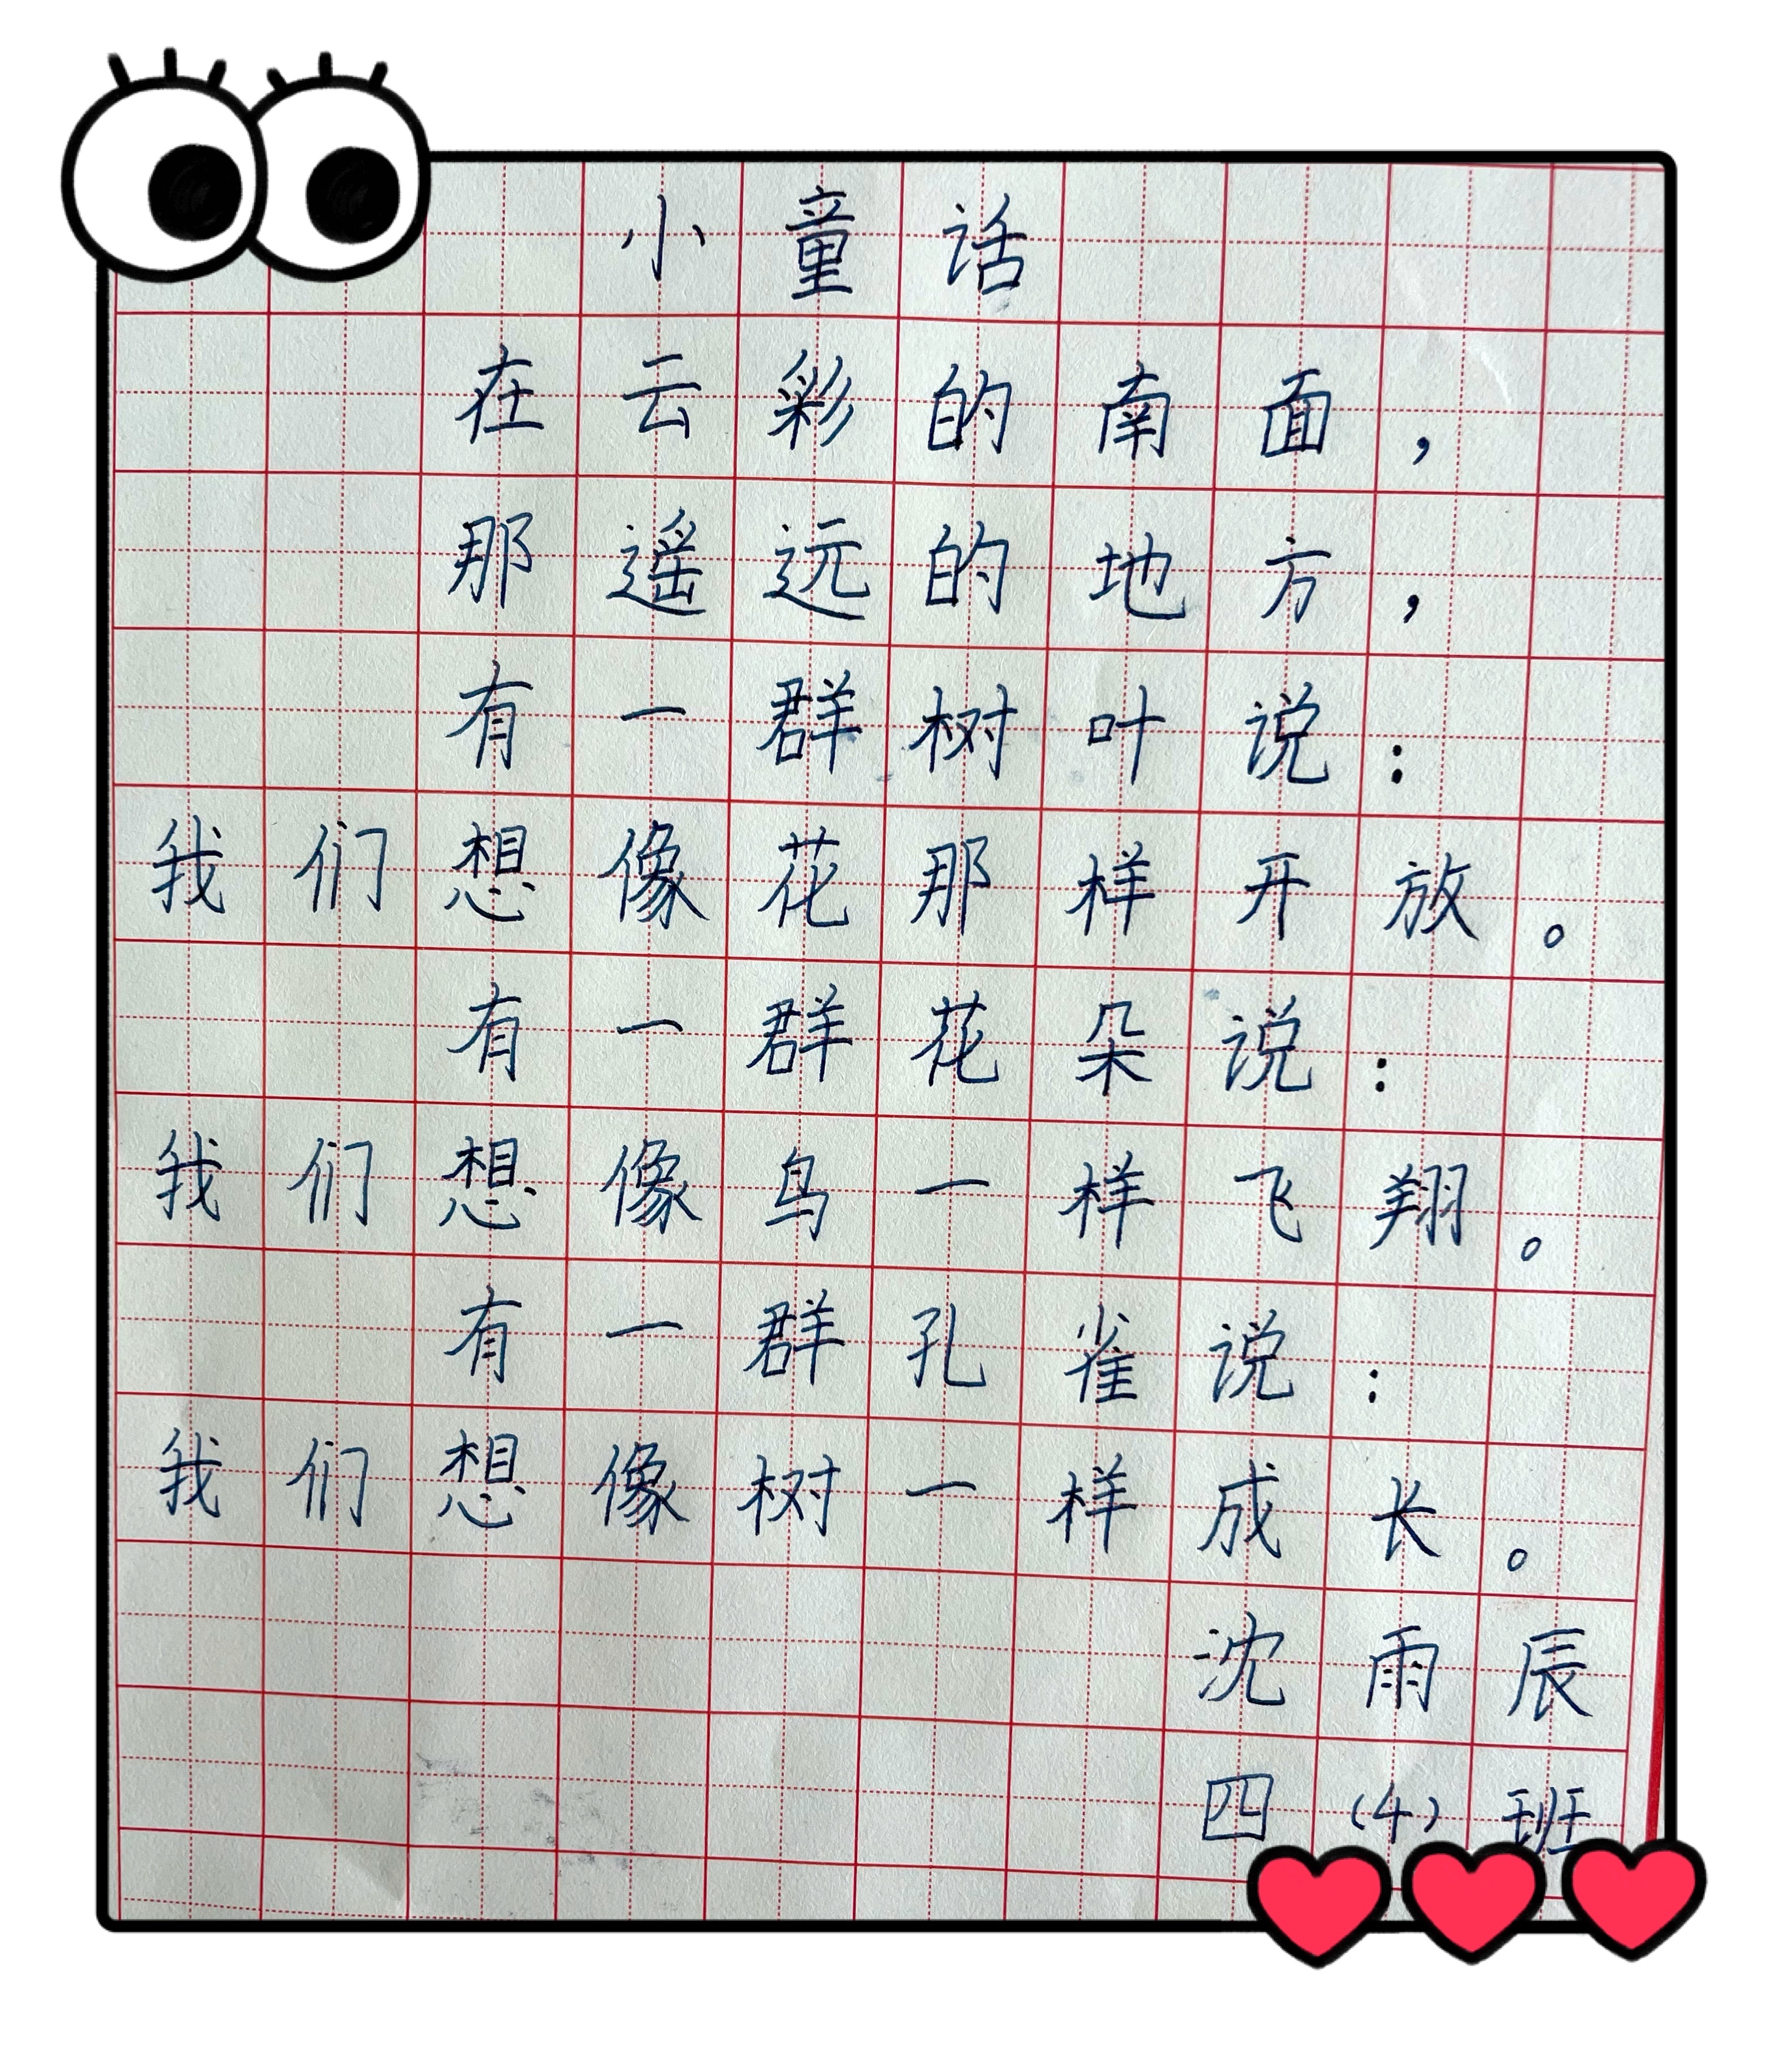 小童话
在云彩的南面，
那遥远的地方，
有一群树叶说：
我们想像花那样开放。
有一群花朵说：
我们想像鸟一样飞翔。
有一群孔雀说：
我们想像树一样成长。
沈雨辰
四（4）班